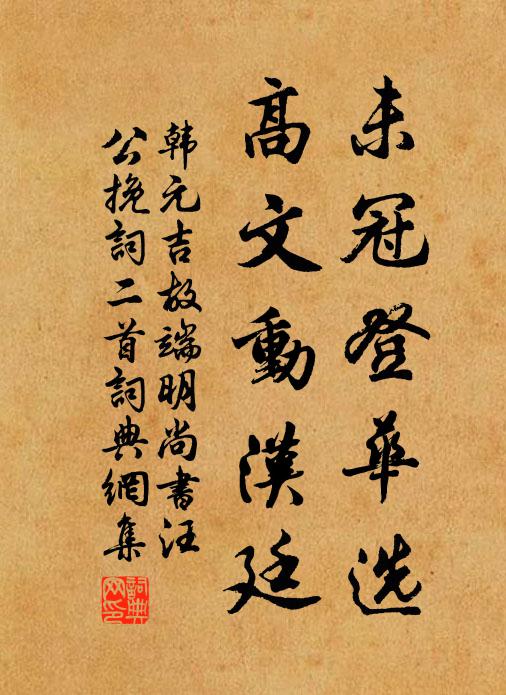 未冠登華选
高文動漢廷
韩元吉故端明尚書汪
公挽詞二首詞典網集
詞典
网印